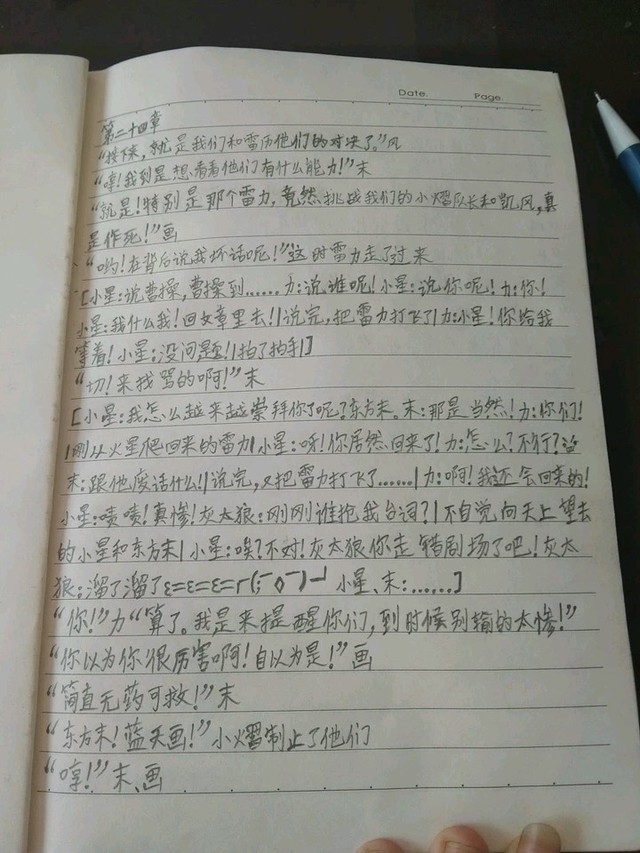 Date.          Page.
第二十四章
“接下来，就是我们和雷历他们的对决了。”风
“哼！我到是想看看他们有什么能力！”末
“就是！特别是那个雷力，竟然挑战我们的小熠队长和凯风，真
是作死！”画
“哟！在背后说我坏话呢！”这时雷力走了过来
[小星：说曹操，曹操到……力：说谁呢！小星：说你呢！力：你！
小星：我什么我！回文章里去！|说完，把雷力打飞了|力：小星！你给我
等着！小星：没问题！|拍了拍手|]
“切！来找骂的啊！”末
[小星：我怎么越来越崇拜你了呢？东方末。末：那是当然！力：你们！
|刚从火星爬回来的雷力|小星：呀！你居然回来了！力：怎么？不行？
末：跟他废话什么！|说完，又把雷力打飞了……|力：啊！我还会回来的！
小星：啧啧！真惨！灰太狼：刚刚谁抢我台词？|不自觉向天上望去
的小星和东方末|小星：唉？不对！灰太狼你走错剧场了吧！灰太
狼：溜了溜了ε=ε=ε=┌(；￣◇￣)┘ 小星、末：……]
“你！”力“算了。我是来提醒你们，到时候别输的太惨！”
“你以为你很厉害啊！自以为是！”画
“简直无药可救！”末
“东方末！蓝天画！”小熠制止了他们
“哼！”末、画